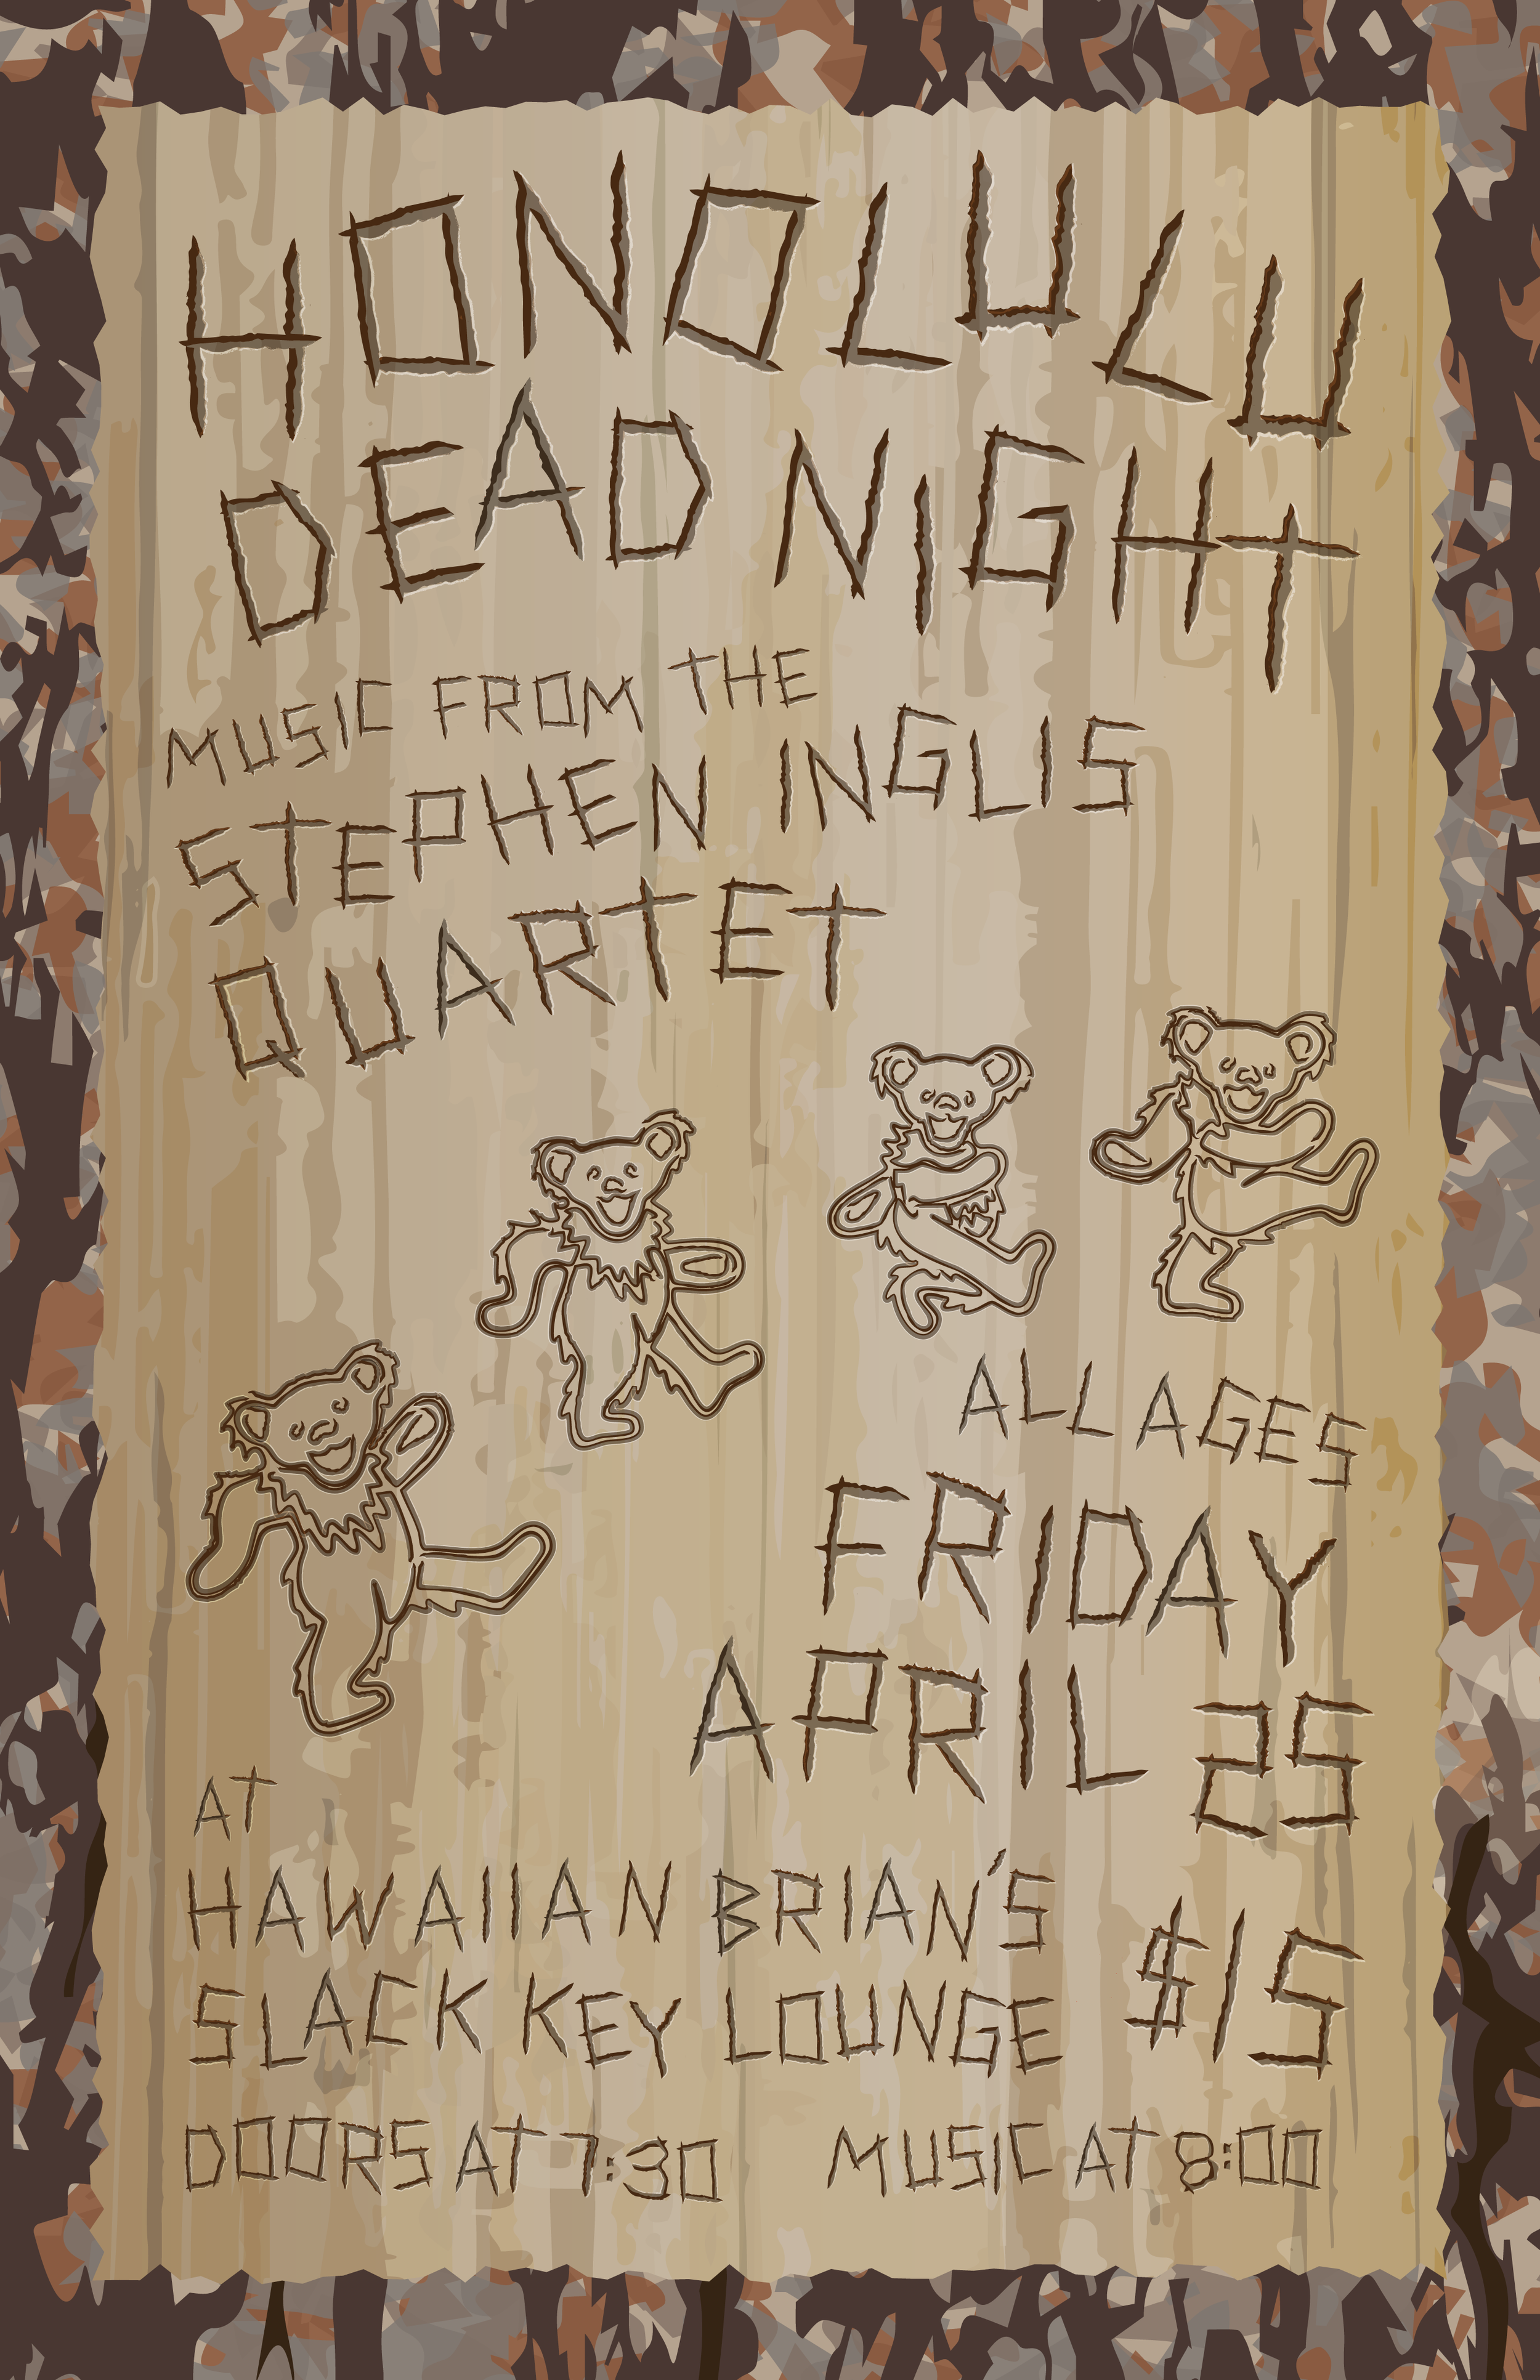 HONOLULU
DEAD NIGHT
MUSIC FROM THE
STEPHEN INGLIS
QUARTET
ALL AGES
FRIDAY
APRIL 25
AT
HAWAIIAN BRIAN'S
SLACK KEY LOUNGE
$15
DOORS AT 7:30 MUSIC AT 8:00